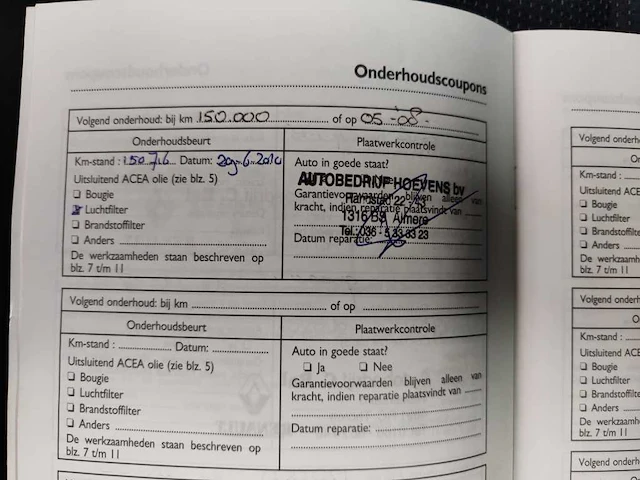 Onderhoudscoupons
Volgend onderhoud: bij km 150.000 of op 05-'08-
Onderhoudsbeurt
Plaatwerkcontrole
Km-stand : 150.716 Datum:
Uitsluitend ACEA olie (zie blz. 5)
❑ Bougie
Luchtfilter
❑ Brandstoffilter
❑ Anders
De werkzaamheden staan beschreven op
blz. 7 t/m 11
Auto in goede staat?
AUTOBEDRIJF HOEVENS bv
Garantievoorwaarden blijven alleen van
kracht, indien reparatie plaatsvindt van
1316 BS Almere
Tel. 036 - 5 33 33 23
Datum reparatie:
Volgend onderhoud: bij km of op
Onderhoudsbeurt
Plaatwerkcontrole
Km-stand : Datum:
Uitsluitend ACEA olie (zie blz. 5)
❑ Bougie
❑ Luchtfilter
❑ Brandstoffilter
❑ Anders
De werkzaamheden staan beschreven op
blz. 7 t/m 11
Auto in goede staat?
❑ Ja ❑ Nee
Garantievoorwaarden blijven alleen van
kracht, indien reparatie plaatsvindt van
Datum reparatie:
Volgend onderh
Km-stand :
Uitsluitend ACE
❑ Bougie
❑ Luchtfilter
❑ Brandstoffilte
❑ Anders
De werkzaamh
blz. 7 t/m 11
Volgend onderh
Km-stand :
Uitsluitend ACE
❑ Bougie
❑ Luchtfilter
❑ Brandstoffil
❑ Anders
De werkzaam
blz. 7 t/m 11